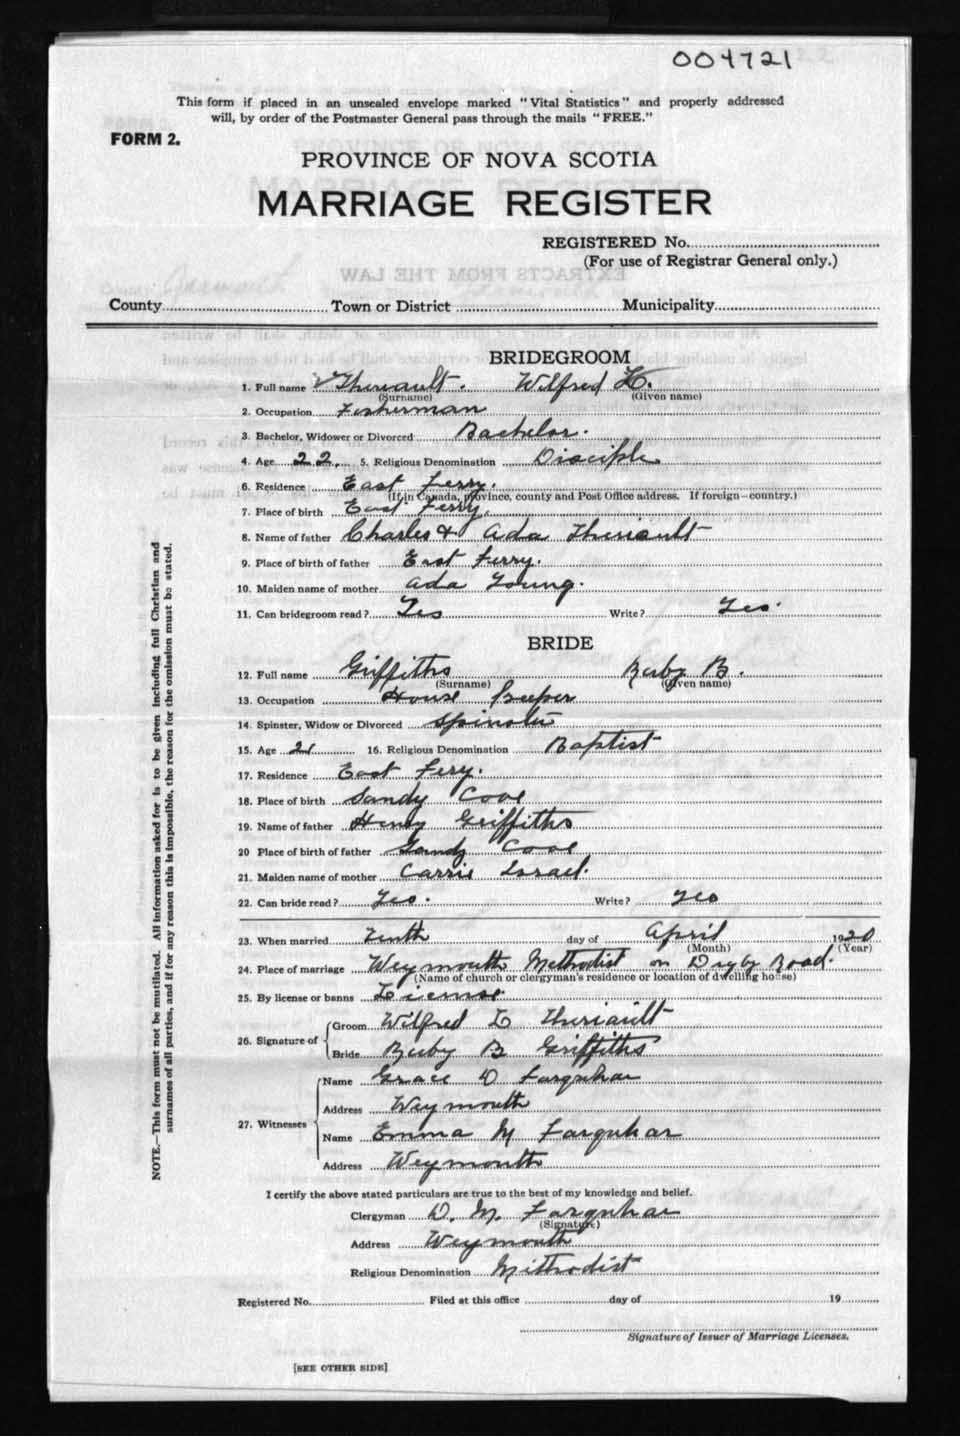 004721
This form if placed in an unsealed envelope marked "Vital Statistics" and properly addressed
will, by order of the Postmaster General pass through the mails "FREE."
FORM 2.
PROVINCE OF NOVA SCOTIA
MARRIAGE REGISTER
REGISTERED No.
(For use of Registrar General only.)
EXTRACTS FROM THE LAW
County Town or District Municipality
BRIDEGROOM
1. Full name Theriault. Wilfred L.
(Surname) (Given name)
2. Occupation Fisherman
3. Bachelor, Widower or Divorced Bachelor.
4. Age 22. 5. Religious Denomination Disciple
6. Residence East Ferry.
(If in Canada, province, county and Post Office address. If foreign—country.)
7. Place of birth East Ferry.
8. Name of father Charles & Ada Theriault
9. Place of birth of father East Ferry.
10. Maiden name of mother Ada Young.
11. Can bridegroom read? Yes Write? Yes.
BRIDE
12. Full name Griffiths Ruby B.
(Surname) (Given name)
13. Occupation House Keeper
14. Spinster, Widow or Divorced Spinster
15. Age 21 16. Religious Denomination Baptist
17. Residence East Fery.
18. Place of birth Sandy Cove
19. Name of father Henry Griffiths
20 Place of birth of father Sandy Cove
21. Maiden name of mother Carrie Israel.
22. Can bride read? Yes. Write? Yes
23. When married Tenth day of April 1920
(Month) (Year)
24. Place of marriage Weymouth Methodist on Digby Road.
(Name of church or clergyman's residence or location of dwelling house)
25. By license or banns License
26. Signature of Groom Wilfred L Theriault
Bride Ruby B Griffiths
27. Witnesses Name Grace D Farquhar
Address Weymouth
Name Emma M Farquhar
Address Weymouth
I certify the above stated particulars are true to the best of my knowledge and belief.
Clergyman D. M. Farquhar
(Signature)
Address Weymouth
Religious Denomination Methodist
Registered No. Filed at this office day of 19
Signature of Issuer of Marriage Licenses.
[SEE OTHER SIDE]
NOTE.—This form must not be mutilated. All information asked for is to be given including full Christian and
surnames of all parties, and if for any reason this is impossible, the reason for the omission must be stated.